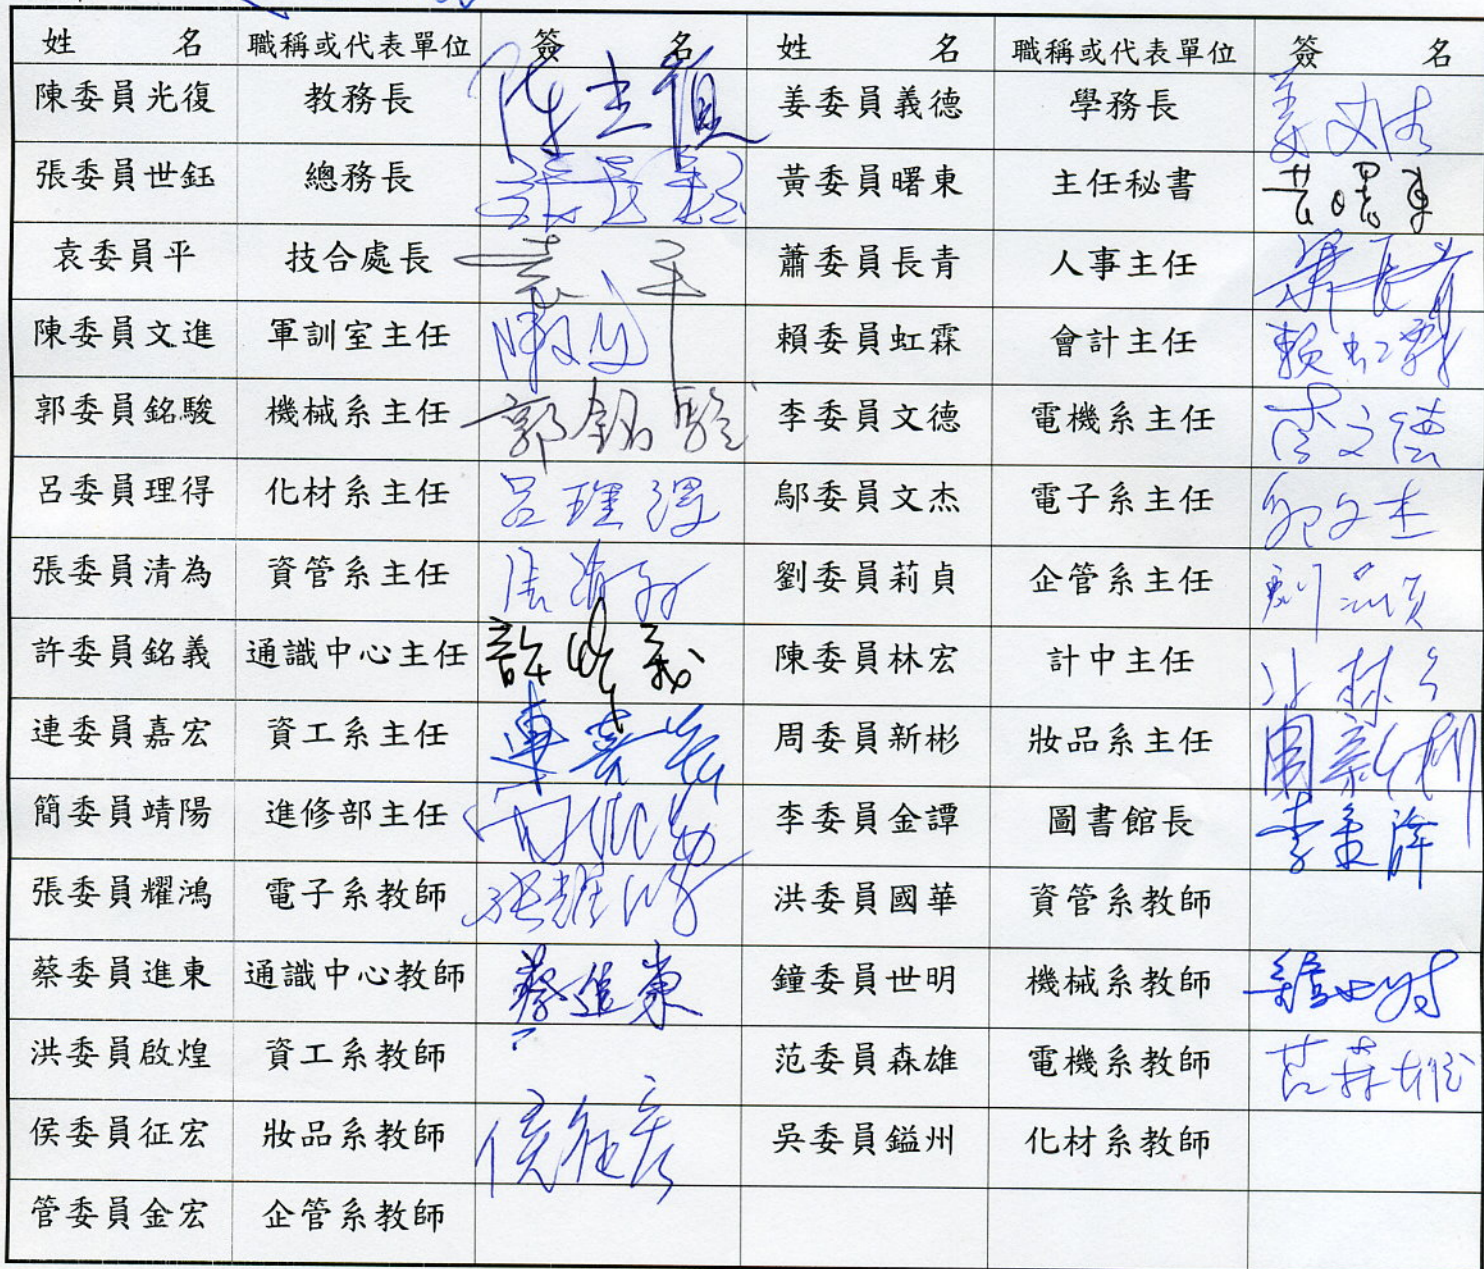 姓 名 職稱或代表單位 簽 名 姓 名 職稱或代表單位 簽 名
陳委員光復 教務長 陳光復 姜委員義德 學務長 姜
張委員世鈺 總務長 張世鈺 黃委員曙東 主任秘書 黃曙東
袁委員平 技合處長 袁平 蕭委員長青 人事主任 蕭長青
陳委員文進 軍訓室主任 陳文進 賴委員虹霖 會計主任 賴虹霖
郭委員銘駿 機械系主任 郭銘駿 李委員文德 電機系主任 李文德
呂委員理得 化材系主任 呂理得 鄔委員文杰 電子系主任 鄔文杰
張委員清為 資管系主任 劉委員莉貞 企管系主任 劉莉貞
許委員銘義 通識中心主任 許銘義 陳委員林宏 計中主任 林
連委員嘉宏 資工系主任 連嘉宏 周委員新彬 妝品系主任 周新彬
簡委員靖陽 進修部主任 李委員金譚 圖書館長 李金譚
張委員耀鴻 電子系教師 張耀鴻 洪委員國華 資管系教師
蔡委員進東 通識中心教師 蔡進東 鐘委員世明 機械系教師 鐘世明
洪委員啟煌 資工系教師 范委員森雄 電機系教師 范森雄
侯委員征宏 妝品系教師 侯征宏 吳委員鎰州 化材系教師
管委員金宏 企管系教師